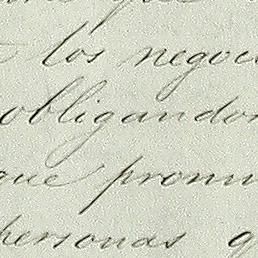 los negoci
obligandon
que promu
personas q